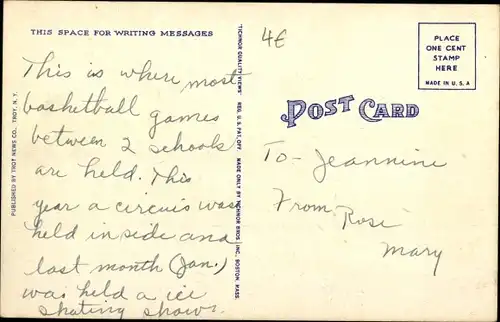 THIS SPACE FOR WRITING MESSAGES
This is where most
basketball games
between 2 schools
are held. This
year a circuis was
held in side and
last month (Jan.)
was held a ice
skating show.
PUBLISHED BY TROY NEWS CO., TROY, N.Y.
"TICHNOR QUALITY VIEWS" REG. U.S. PAT. OFF. MADE ONLY BY TICHNOR BROS., INC., BOSTON, MASS.
4€
PLACE
ONE CENT
STAMP
HERE
MADE IN U.S.A
POST CARD
To- Jeannine
From- Rose
Mary